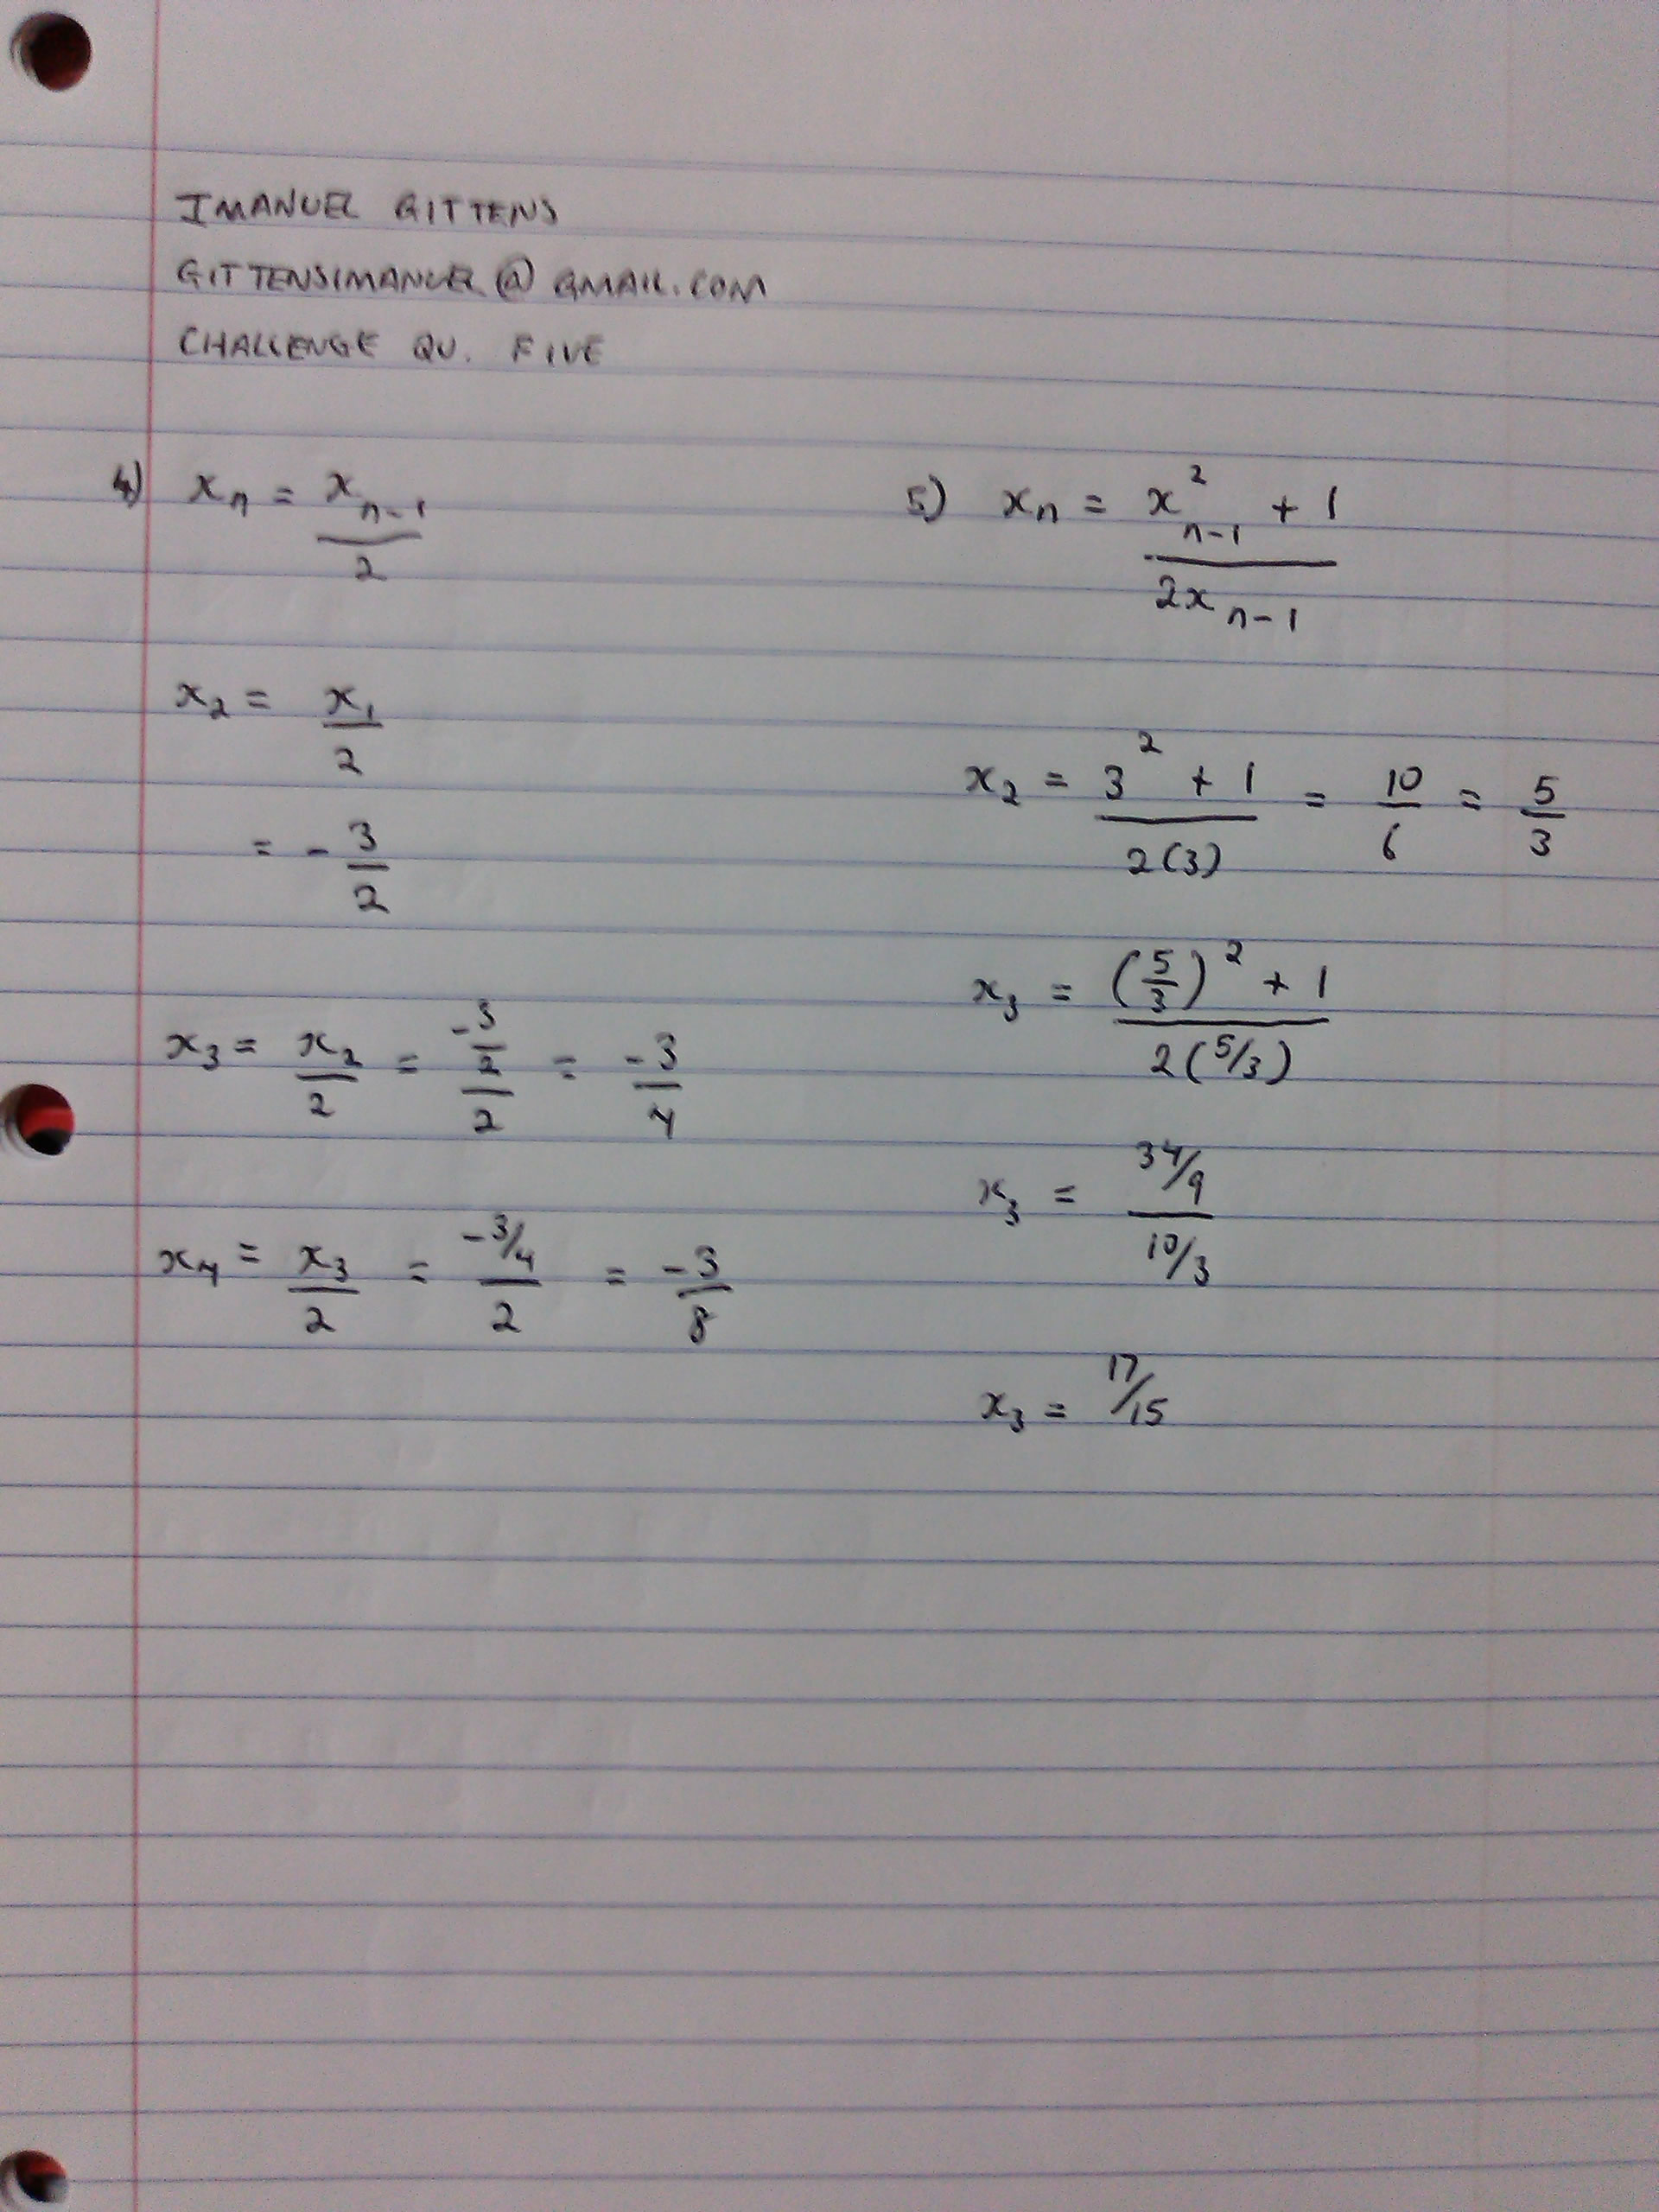 IMANUEL GITTENS
GITTENSIMANUEL@GMAIL.COM
CHALLENGE QU. FIVE
4) xₙ = xₙ₋₁ / 2
x₂ = x₁ / 2
= - 3/2
x₃ = x₂/2 = (-3/2)/2 = -3/4
x₄ = x₃/2 = (-3/4)/2 = -3/8
5) xₙ = (x²ₙ₋₁ + 1) / 2xₙ₋₁
x₂ = (3² + 1) / 2(3) = 10/6 = 5/3
x₃ = ((5/3)² + 1) / 2(5/3)
x₃ = (34/9) / (10/3)
x₃ = 17/15